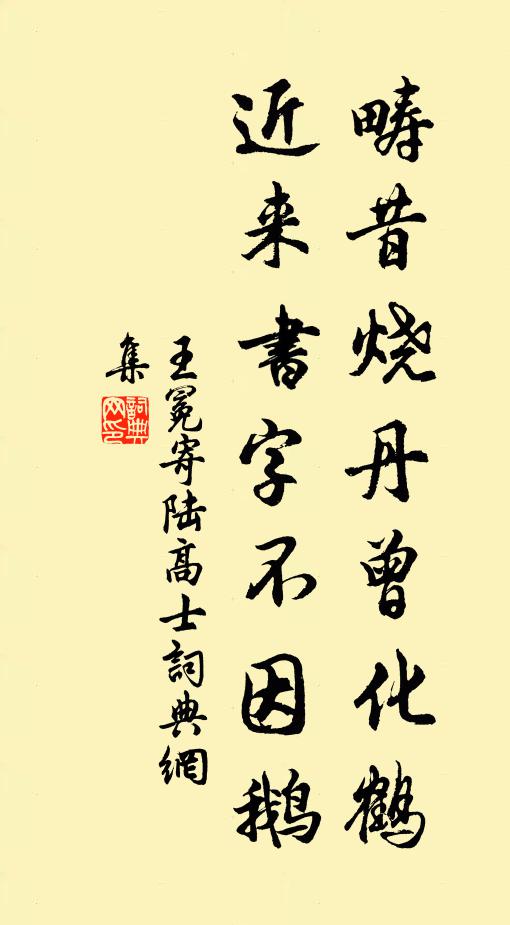 畴昔烧丹曾化鹤
近来書字不因鹅
王冕寄陆高士詞典網
集
詞典
网印